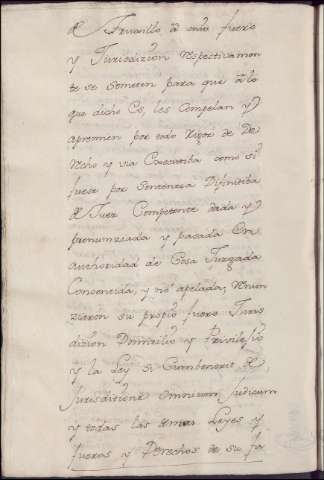 de Truxillo, a cuio fuero
y Jurisdizion respectivamen
te se someten para que a lo
que dicho es, les compelan y
apremien por todo rigor de De
recho y via executiba como si
fuese por sentencia difinitiba
de Juez competente dada y
pronunziada y pasada en
authoridad de cosa Juzgada
consentida, y no apelada, renun
ziaron su propio fuero Juris
dizion Domicilio y Privilegio
y la Ley si combenerit de
Jurisdicione omnium Judicum
y todas las demas Leyes y
fueros y Derechos de su fa